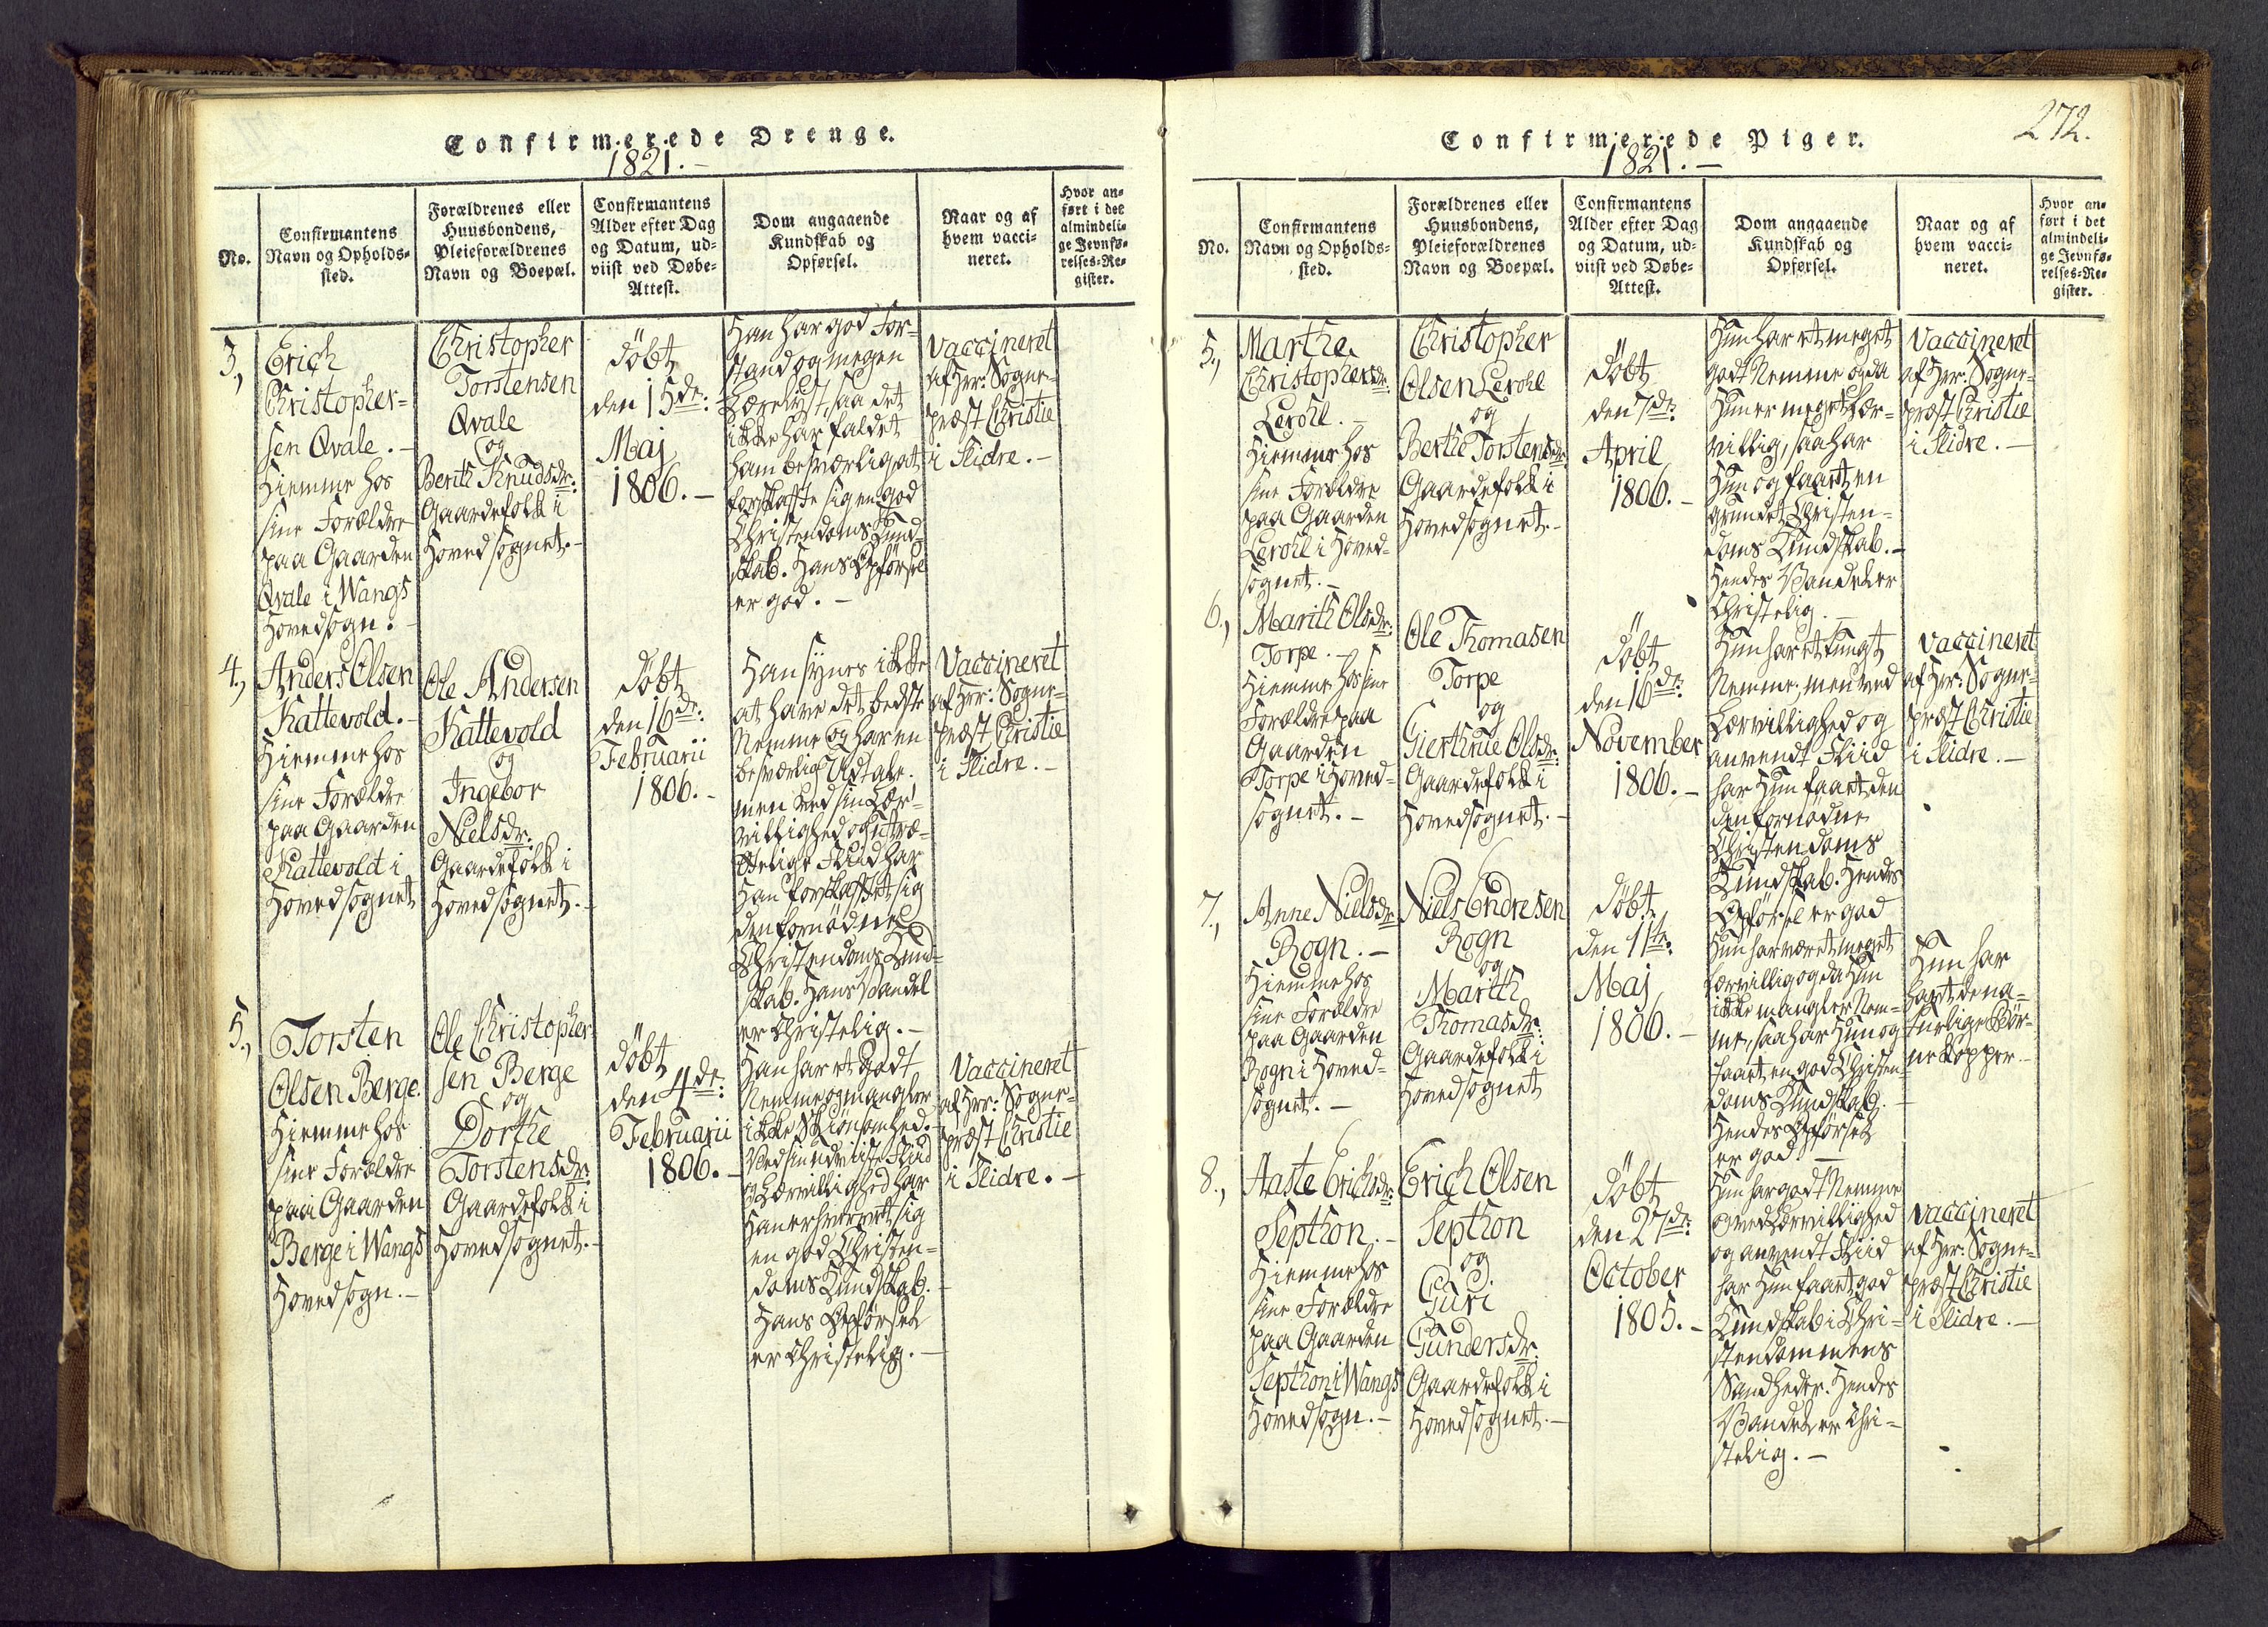 Confirmerede Drenge.
1821. –
No.
Confirmantens
Navn og Opholds-
sted.
Forældrenes eller
Huusbondens,
Pleieforældrenes
Navn og Boepæl.
Confirmantens
Alder efter Dag
og Datum, ud-
viist ved Døbe-
Attest.
Dom angaaende
Kundskab og
Opførsel.
Naar og af
hvem vacci-
neret.
Hvor an-
ført i det
almindeli-
ge Jevnfø-
relses-Re-
gister.
3.,
Erich
Christopher=
sen Qvale. –
Hiemme hos
sine Forældre
paa Gaarden
Qvale i Wangs
Hovedsogn. –
Christopher
Torstensen
Qvale
og
Berith Knudsdr:
Gaardefolk i
Hovedsognet. –
döbt
den 15de:
Maj
1806. –
Han har god For-
stand og megen
Lærelyst, saa det
ikke har faldet
ham besværligt, at
forskaffe sig en god
Christendoms Kund-
skab. Hans Opførsel
er god. –
Vaccineret
af Her: Sogne-
præst Christie
i Slidre. –
4.,
Anders Olsen
Kattevold. –
Hiemme hos
sine Forældre
paa Gaarden
Kattevold i
Hovedsognet
Ole Andersen
Kattevold
og
Ingebor
Nielsdr:
Gaardefolk i
Hovedsognet. –
döbt
den 16de:
Februarii
1806. –
Han synes ikke
at have det bedste
Nemme og har en
besværlig Udtale.
men ved sin Lær-
villighed og utræ-
ttelige Fliid har
Han forskaffet sig
den fornödne
Christendoms Kund-
skab. Hans Vandel
er Christelig. –
Vaccineret
af Her: Sogne-
præst Christie
i Slidre. –
5.,
Torsten
Olsen Berge.
Hiemme hos
sine Forældre
paa Gaarden
Berge i Wangs
Hovedsogn. –
Ole Christopher-
sen Berge
og
Dorthe
Torstensdr:
Gaardefolk i
Hovedsognet. –
döbt
den 4de:
Februarii
1806. –
Han har et godt
Nemme og mangler
ikke Skiönsomhed. –
Ved sin udviiste Fliid
og Lærvillighed har
Han erhvervet sig
en god Christen-
doms Kundskab. –
Hans Opførsel
er Christelig. –
Vaccineret
af Her: Sogne-
præst Christie
i Slidre. –
272.
Confirmerede Piger.
1821. –
No.
Confirmantens
Navn og Opholds-
sted.
Forældrenes eller
Huusbondens,
Pleieforældrenes
Navn og Boepæl.
Confirmantens
Alder efter Dag
og Datum, ud-
viist ved Døbe-
Attest.
Dom angaaende
Kundskab og
Opførsel.
Naar og af
hvem vacci-
neret.
Hvor an-
ført i det
almindeli-
ge Jevnfø-
relses-Re-
gister.
5.,
Marthe
Christophersdr:
Lerohl. –
Hiemme hos
sine Forældre
paa Gaarden
Lerohl i Hoved-
sognet. –
Christopher
Olsen Lerohl
og
Berthe Torstensdr:
Gaardefolk i
Hovedsognet. –
döbt
den 7de:
April
1806. –
Hun har et meget
godt Nemme og da
Hun er meget Lær-
villig, saa har
Hun og faaet en
grundet Christen-
doms Kundskab. –
Hendes Vandel er
Christelig. –
Vaccineret
af Her: Sogne-
præst Christie
i Slidre. –
6.,
Marith Olsdr:
Torpe. –
Hiemme hos sine
Forældre paa
Gaarden
Torpe i Hoved-
sognet. –
Ole Thomasen
Torpe
og
Gierthrue Olsdr:
Gaardefolk i
Hovedsognet. –
döbt
den 16de:
November
1806. –
Hun har et tungt
Nemme. men ved
Lærvillighed og
anvendt Fliid
har Hun faaet den
den fornødne
Christendoms
Kundskab. Hendes
Opførsel er god
Vaccineret
af Her: Sogne-
præst Christie
i Slidre. –
7.,
Anne Nielsdr:
Rogn. –
Hiemme hos
sine Forældre
paa Gaarden
Rogn i Hoved-
sognet. –
Niels Endresen
Rogn
og
Marith
Thomasdr:
Gaardefolk i
Hovedsognet
döbt
den 11te:
Maj
1806. –
Hun har været meget
lærvillig og da Hun
ikke mangler Nem-
me, saa har Hun og
faaet en god Christen-
doms Kundskab. –
Hendes Opførsel
er god. –
Hun har
havt de na-
turlige Bör-
ne Kopper –
8.,
Aaste Erichsdr:
Septhon. –
Hiemme hos
sine Forældre
paa Gaarden
Septhon i Wangs
Hovedsogn. –
Erich Olsen
Septhon
og
Guri
Gundersdr:
Gaardefolk i
Hovedsognet. –
döbt
den 27de:
October
1805. –
Hun har godt Nemme
og ved Lærvillighed
og anvendt Fliid
har Hun faaet god
Kundskab i Chri-
stendommens
Sandheder. Hendes
Vandel er Chri-
stelig. –
Vaccineret
af Her: Sogne-
præst Christie
i Slidre. –